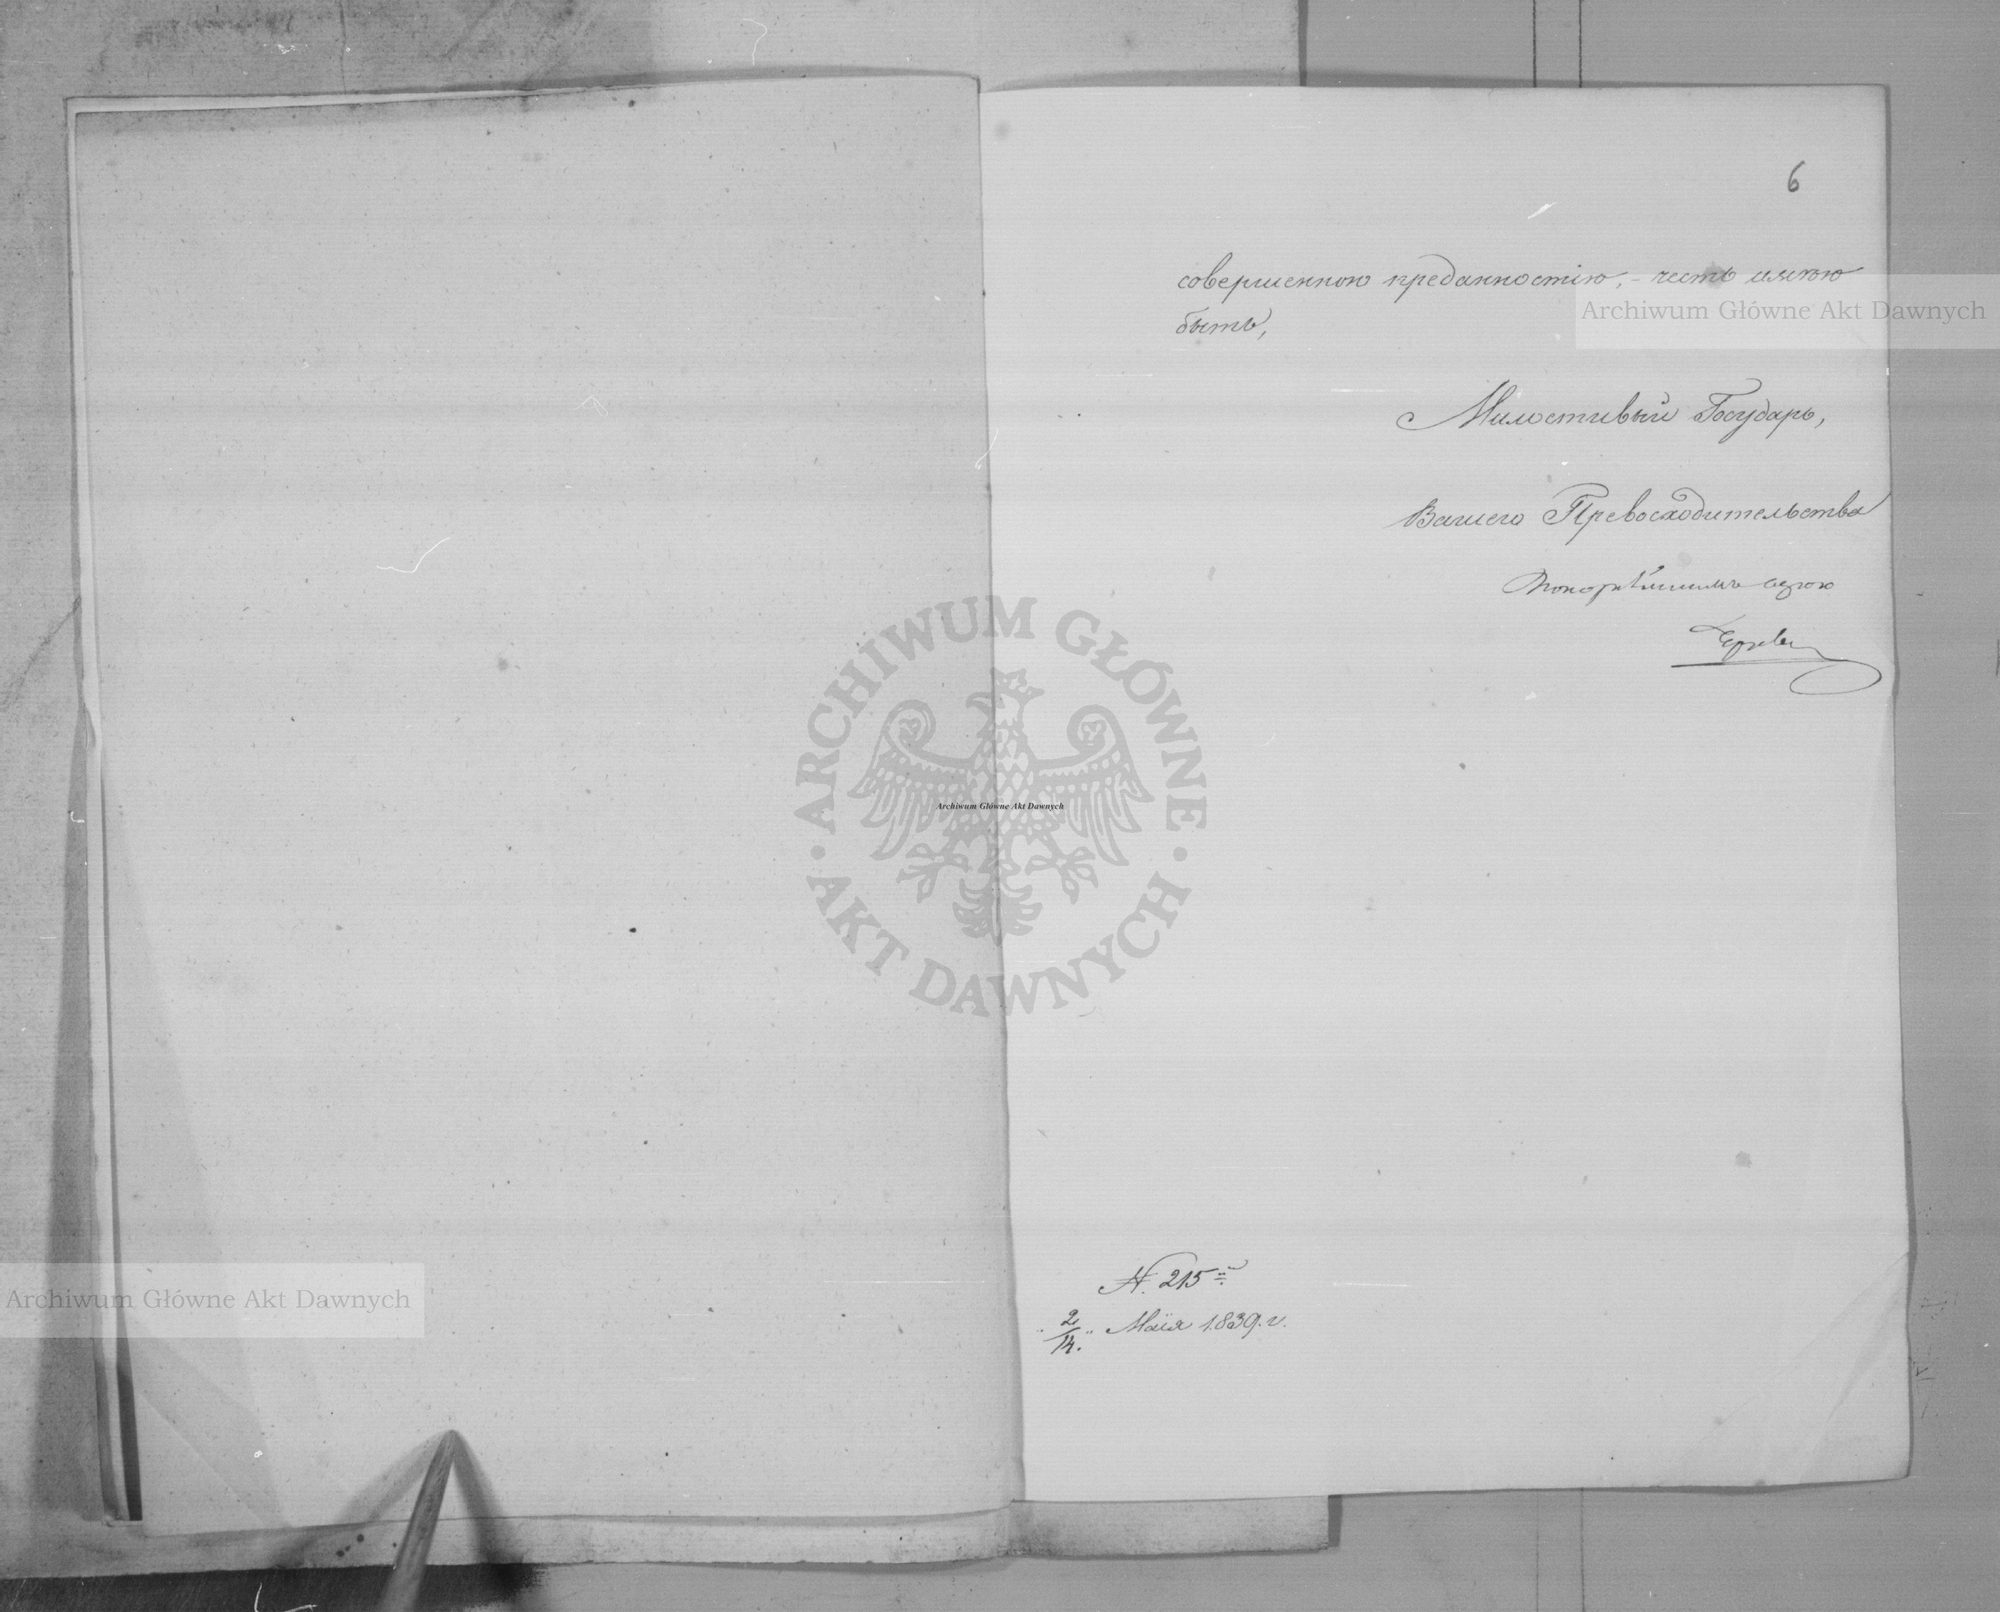 6
совершенною преданностію, – честь имѣю
быть,
Милостивый Государь,
Вашего Превосходительства
покорнѣйшимъ слугою
N. 215
2/14. Маія 1839. г.
Archiwum Główne Akt Dawnych
ARCHIWUM GŁÓWNE
Archiwum Główne Akt Dawnych
AKT DAWNYCH
Archiwum Główne Akt Dawnych